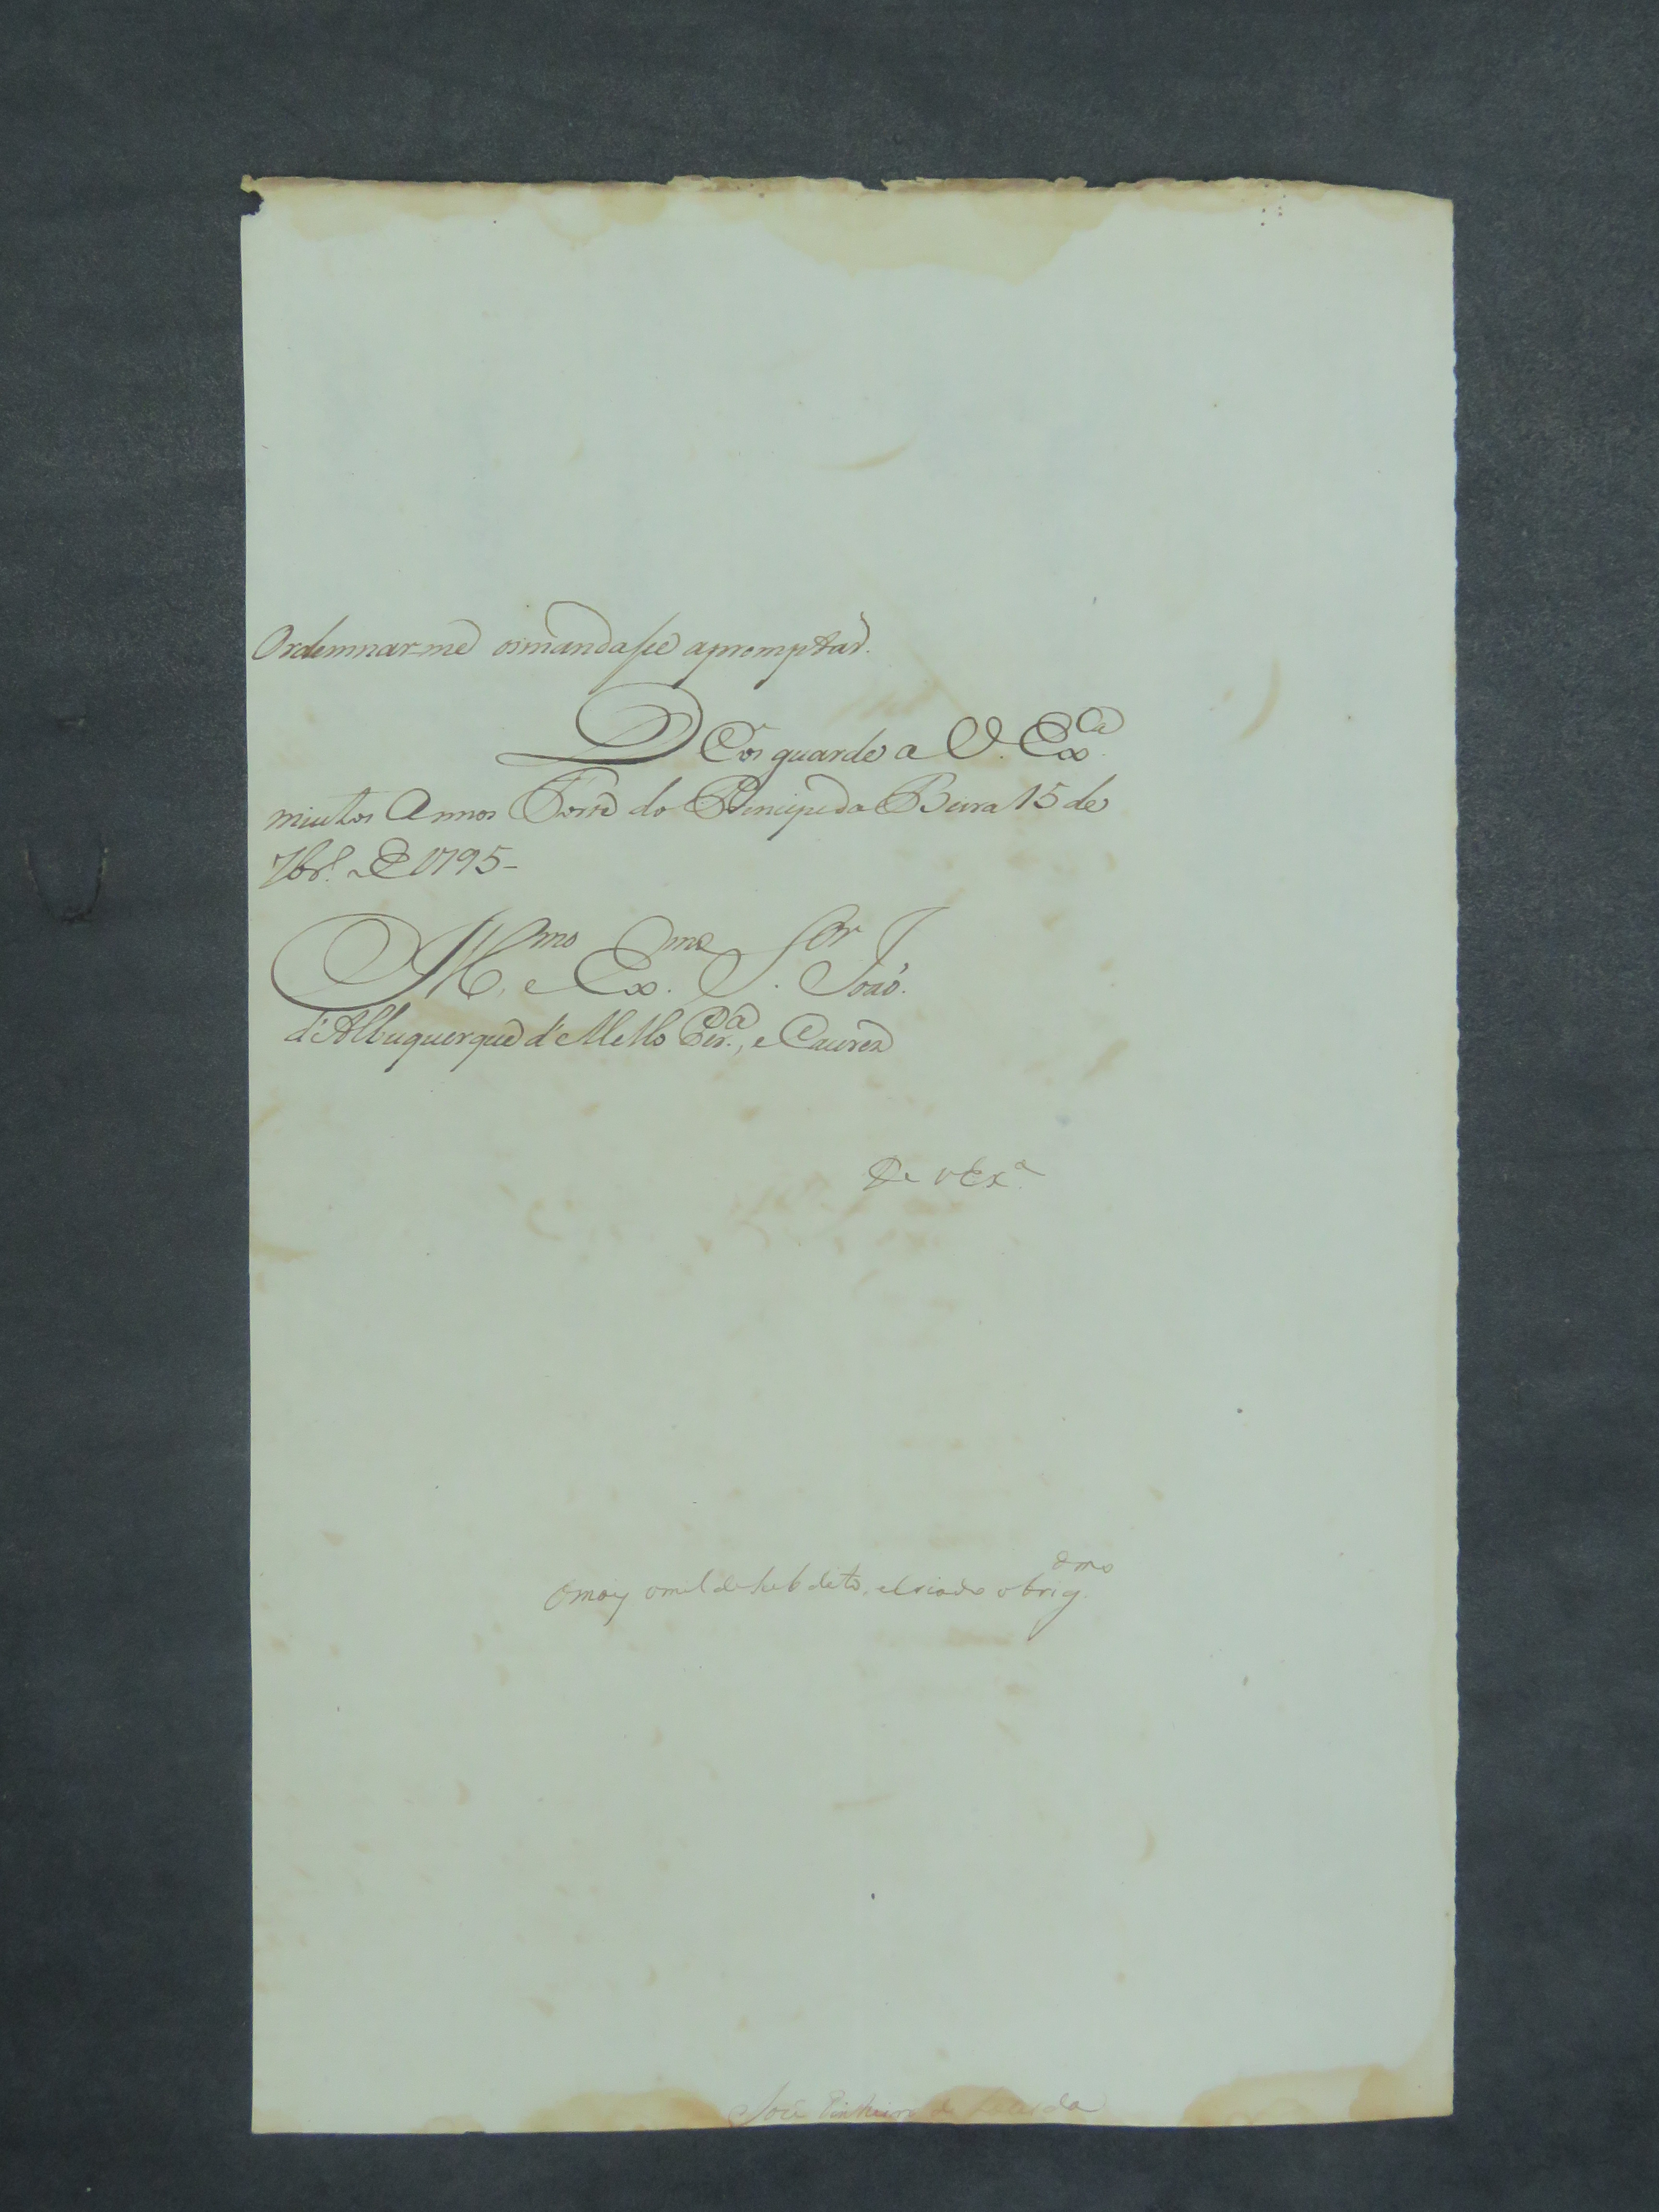 Ordemnar-me os mandasse apromptar.
Deos guarde a V. Exa.
muitos Annos Forte do Principe da Beira 15 de
7br.o de 1795-
Illmo. e Exmo. Sor. João
d'Albuquerque d'Mello Per.a, e Caceres
De VExa.
O mais omilde Subdeto, e criado obrigdmo.
José Pinheiro de Lacerda